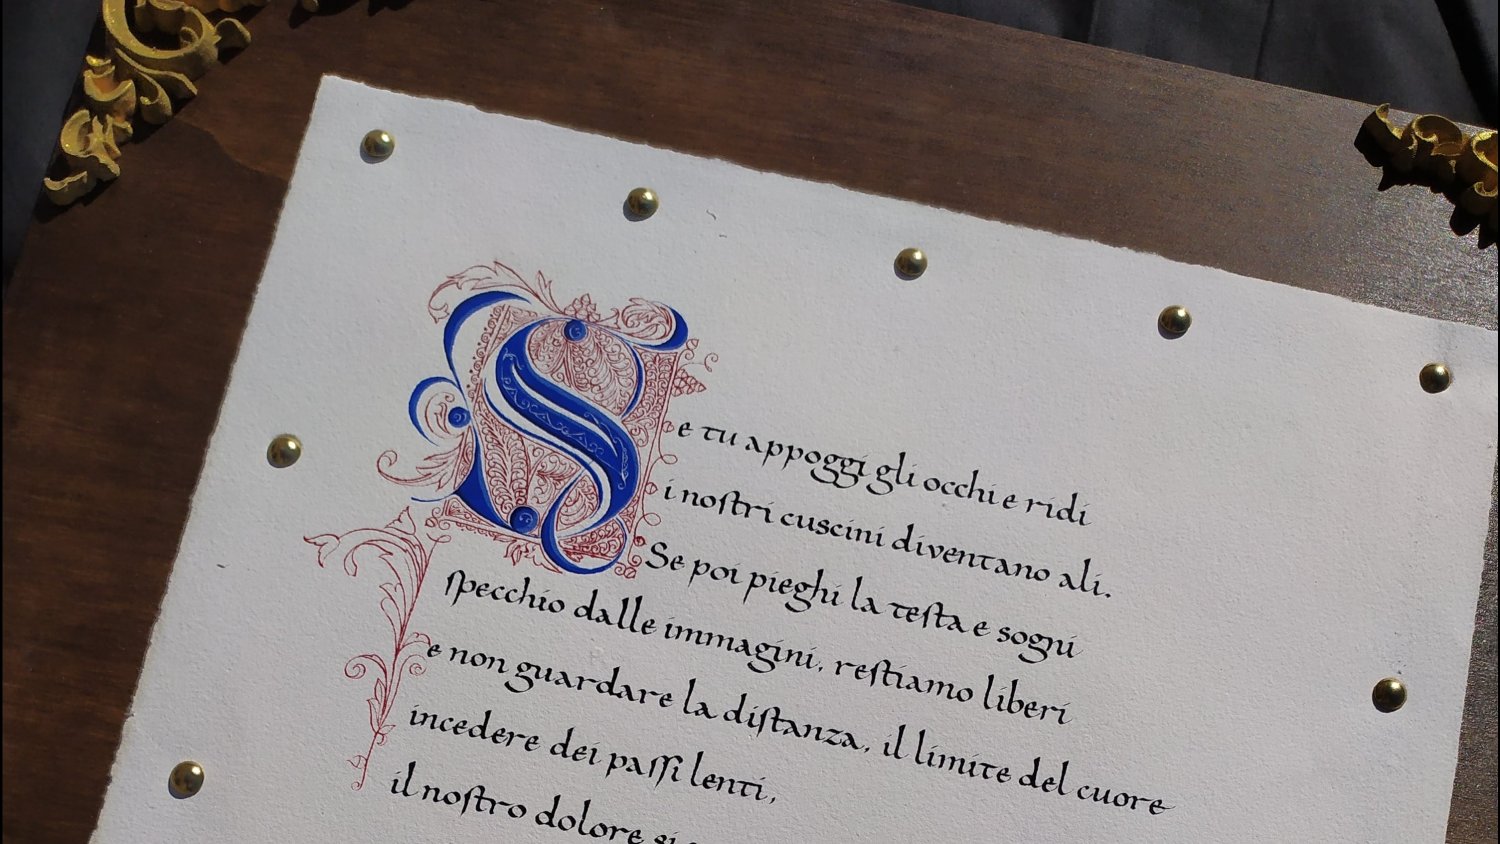 Se tu appoggi gli occhi e ridi
i nostri cuscini diventano ali.
Se poi pieghi la testa e sogni
specchio dalle immagini, restiamo liberi
e non guardare la distanza, il limite del cuore
incedere dei passi lenti,
il nostro dolore si